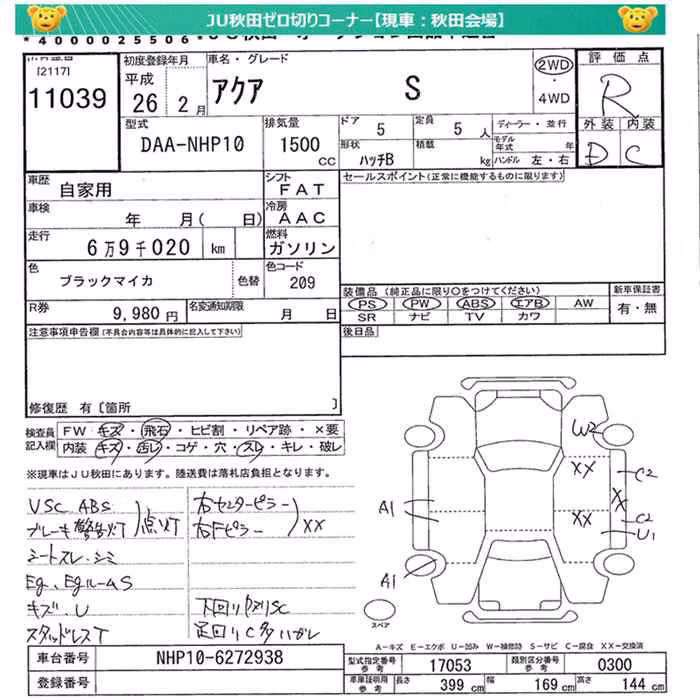 JU秋田ゼロ切りコーナー【現車：秋田会場】
*4000025506*
[2117]
11039
初度登録年月
平成
26 2月
車名・グレード
アクア S
2WD
・
4WD
評価点
R
外装 内装
D C
型式
DAA-NHP10
排気量
1500 CC
ドア 5
定員 5 人
形状 ハッチB
積載 kg
ディーラー・並行
モデル年式 年
ハンドル 左・右
車歴
自家用
シフト
FAT
セールスポイント(正常に機能するものに限ります)
車検
年 月( 日)
冷房
AAC
走行
6万9千020 km
燃料
ガソリン
色
ブラックマイカ
色替
色コード
209
R券
9,980円
名変通知期限
月 日
装備品 (純正品に限り○をつけてください)
PS PW ABS エアB AW
SR ナビ TV カワ
新車保証書
有・無
後日品
注意事項申告欄(不具合内容等は具体的に記入して下さい)
修復歴 有〔箇所 〕
検査員
記入欄
FW キズ・飛石・ヒビ割・リペア跡・×要
内装 キズ・汚レ・コゲ・穴・スレ・キレ・破レ
※現車はJU秋田にあります。陸送費は落札店負担となります。
VSC ABS
ブレーキ警告灯 点灯
シートスレ・シミ
Eg、EgルームS
キズ、U
スタッドレスT
右センターピラー
右Fピラー
XX
下回り SC
足回りC多ハガレ
W2
XX
C2
XX
XX
C2
U1
A1
A1
スペア
A-キズ E-エクボ U-凹み W-補修跡 S-サビ C-腐食 XX-交換済
車台番号
NHP10-6272938
登録番号
型式指定番号
参考
17053
類別区分番号
参考
0300
車庫証明用
参考
長さ 399 cm
幅 169 cm
高さ 144 cm